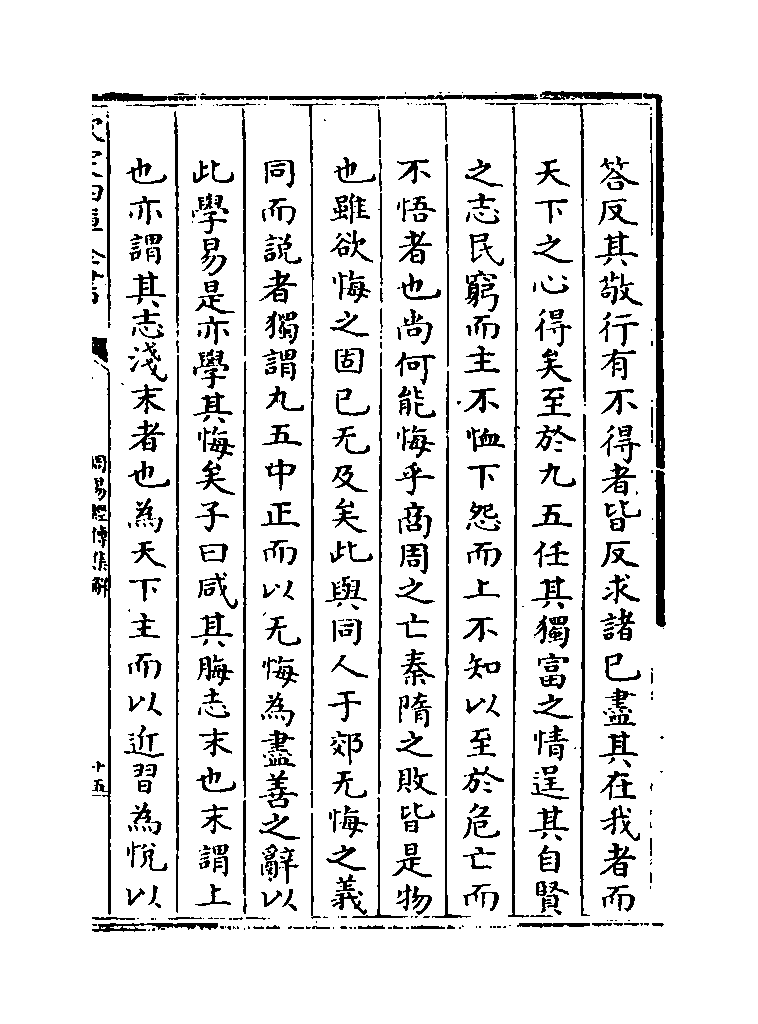 答反其敬行有不得者皆反求諸已盡其在我者而
天下之心得矣至於九五任其獨富之情逞其自賢
之志民窮而主不恤下怨而上不知以至於危亡而
不悟者也尚何能悔乎商周之亡秦隋之敗皆是物
也雖欲悔之固已无及矣此與同人于郊无悔之義
同而説者獨謂九五中正而以无悔為盡善之辭以
此學易是亦學其悔矣子曰咸其脢志末也末謂上
也亦謂其志淺末者也為天下主而以近習為悅以
周易經傳集解
十五